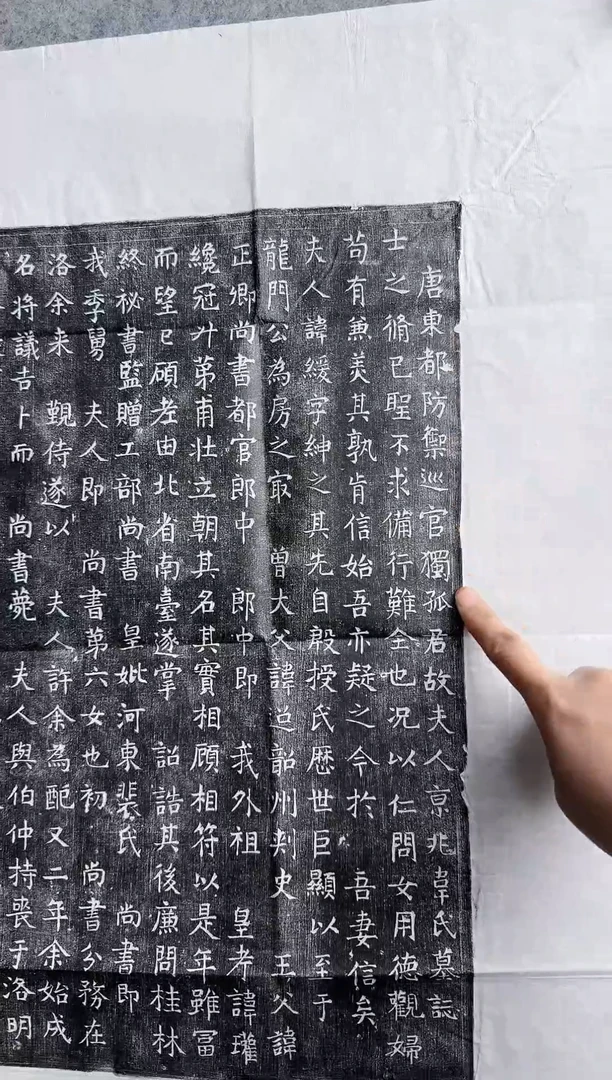 唐東都防禦巡官獨孤君故夫人京兆韋氏墓誌
士之脩已聖不求備行難全也况以仁問女用德觀婦
苟有兼美其孰肯信始吾亦疑之今於 吾妻信矣
夫人諱緩字紳之其先自殷授氏歷世巨顯以至于
龍門公為房之冣 曾大父諱迢韶州刺史 王父諱
正卿尚書都官郎中 郎中即 我外祖 皇考諱瓘
纔冠升第甫壯立朝其名其實相顧相符以是年雖冨
而望已碩老由北省南臺遂掌 詔誥其後廉問桂林
終祕書監贈工部尚書 皇妣河東裴氏 尚書即
我季舅 夫人即 尚書第六女也初 尚書分務在
洛余来 覲侍遂以 夫人許余為配又二年余始成
名将議吉卜而 尚書薨 夫人與伯仲持喪于洛明